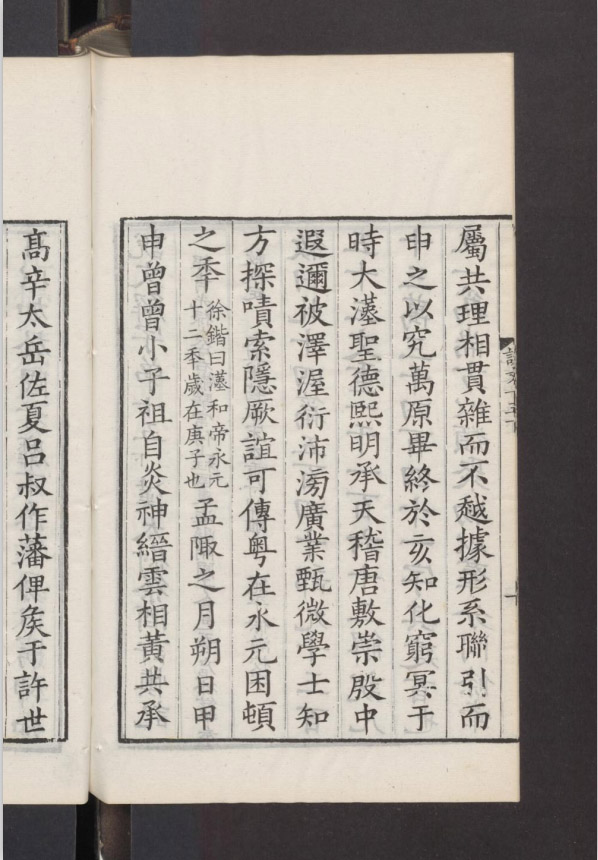 屬共理相貫雜而不越據形系聯引而
申之以究萬原畢終於亥知化窮冥于
時大漢聖德熙明承天稽唐敷崇殷中
遐邇被澤渥衍沛滂廣業甄微學士知
方探嘖索隱厥誼可傳粵在永元困頓
之秊徐鍇曰漢和帝永元十二秊歲在庚子也孟陬之月朔日甲
申曾曾小子祖自炎神縉雲相黃共承
高辛太岳佐夏呂叔作藩俾矦于許世